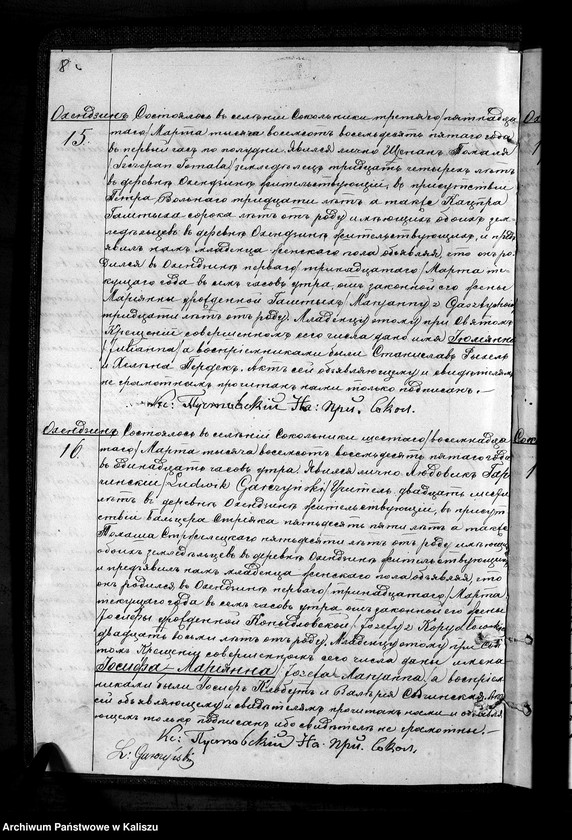 8
Охендзинъ
15.
Состоялось въ селеніи Сокольники третяго /пятнадца
таго/ Марта тысяча восемсотъ восемьдесятъ пятаго года
въ первый часъ по полудни. Явился лично Щепанъ Томаля
/Szczepan Tomala/ земледѣлецъ тридцать четырехъ лѣтъ
въ деревнѣ Охендзинъ жительствующій, въ присутствіи
Петра Вольнаго тридцати лѣтъ а также Кацпра
сорока лѣтъ отъ роду имѣющихъ обоихъ зем
ледѣльцевъ въ деревнѣ Охендзинъ жительствующихъ, и предъ
явилъ намъ младенца женскаго пола объявляя, что онъ ро
дился въ Охендзинѣ перваго /тринадцатаго/ Марта те
кущаго года въ семь часовъ утра, отъ законной его жены
Маріянны урожденной /Maryanny z
тридцати лѣтъ отъ роду. Младенцу этому при Святомъ
Крещеніи совершенномъ сего числа дано имя Юліянна
/Julianna/ а воспріемниками были Станиславъ
и Хелена Пердекъ. Актъ сей объявляющему и свидѣтелямъ
не грамотнымъ прочитанъ нами только подписанъ.—
Кс: На: При. Сокол.
Охендзинъ
16.
Состоялось въ селеніи Сокольники шестаго /восемнадца
таго/ Марта тысяча восемсотъ восемьдесятъ пятаго года
въ одинадцать часовъ утра. Явился лично Людовикъ Гар
чинскій /Ludwik Garczyński/ Учитель, двадцать
лѣтъ въ деревнѣ Охендзинъ жительствующій, въ присут
ствіи Бальцера Стрияка пятьдесятъ пяти лѣтъ а также
Томаша Стрѣлецкаго пятьдесяти лѣтъ отъ роду имѣющ
обоихъ земледѣльцевъ въ деревнѣ Охендзинъ жительствующихъ
и предъявилъ намъ младенца женскаго пола объявляя, что
онъ родился въ Охендзинѣ перваго /тринадцатаго/ Марта
текущаго года въ семь часовъ утра отъ законной его жены
Іосифы урожденной Копыдловской /Józefy z Kopydłowskich
двадцать восьми лѣтъ отъ роду. Младенцу этому при Свя
томъ Крещеніи совершенномъ сего числа даны имена
Іосифа-Маріянна /Józefa Maryanna/, а воспріем
никами были Іосифъ и Валерія
сей объявляющему и свидѣтелямъ прочитанъ нами и объявля
ющемъ только подписанъ ибо свидѣтели не грамотны.—
Кс: На. При. Сокол.
L: Garczyński
Archiwum Państwowe w Kaliszu